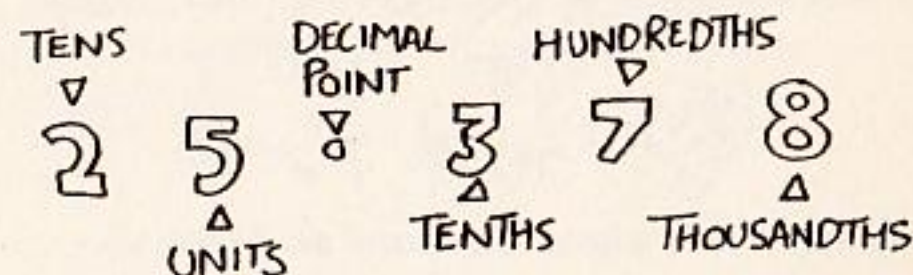 TENS
DECIMAL
POINT
HUNDREDTHS
25.378
UNITS
TENTHS
THOUSANDTHS